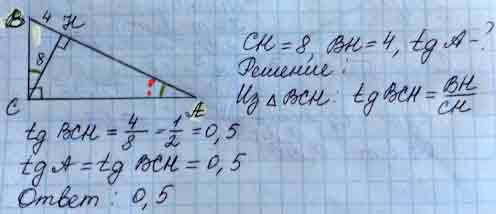 B 4 H
8
C A
CH = 8, BH = 4, tg A - ?
Решение:
Из △ BCH: tg BCH = BH/CH
tg BCH = 4/8 = 1/2 = 0,5
tg A = tg BCH = 0,5
Ответ: 0,5